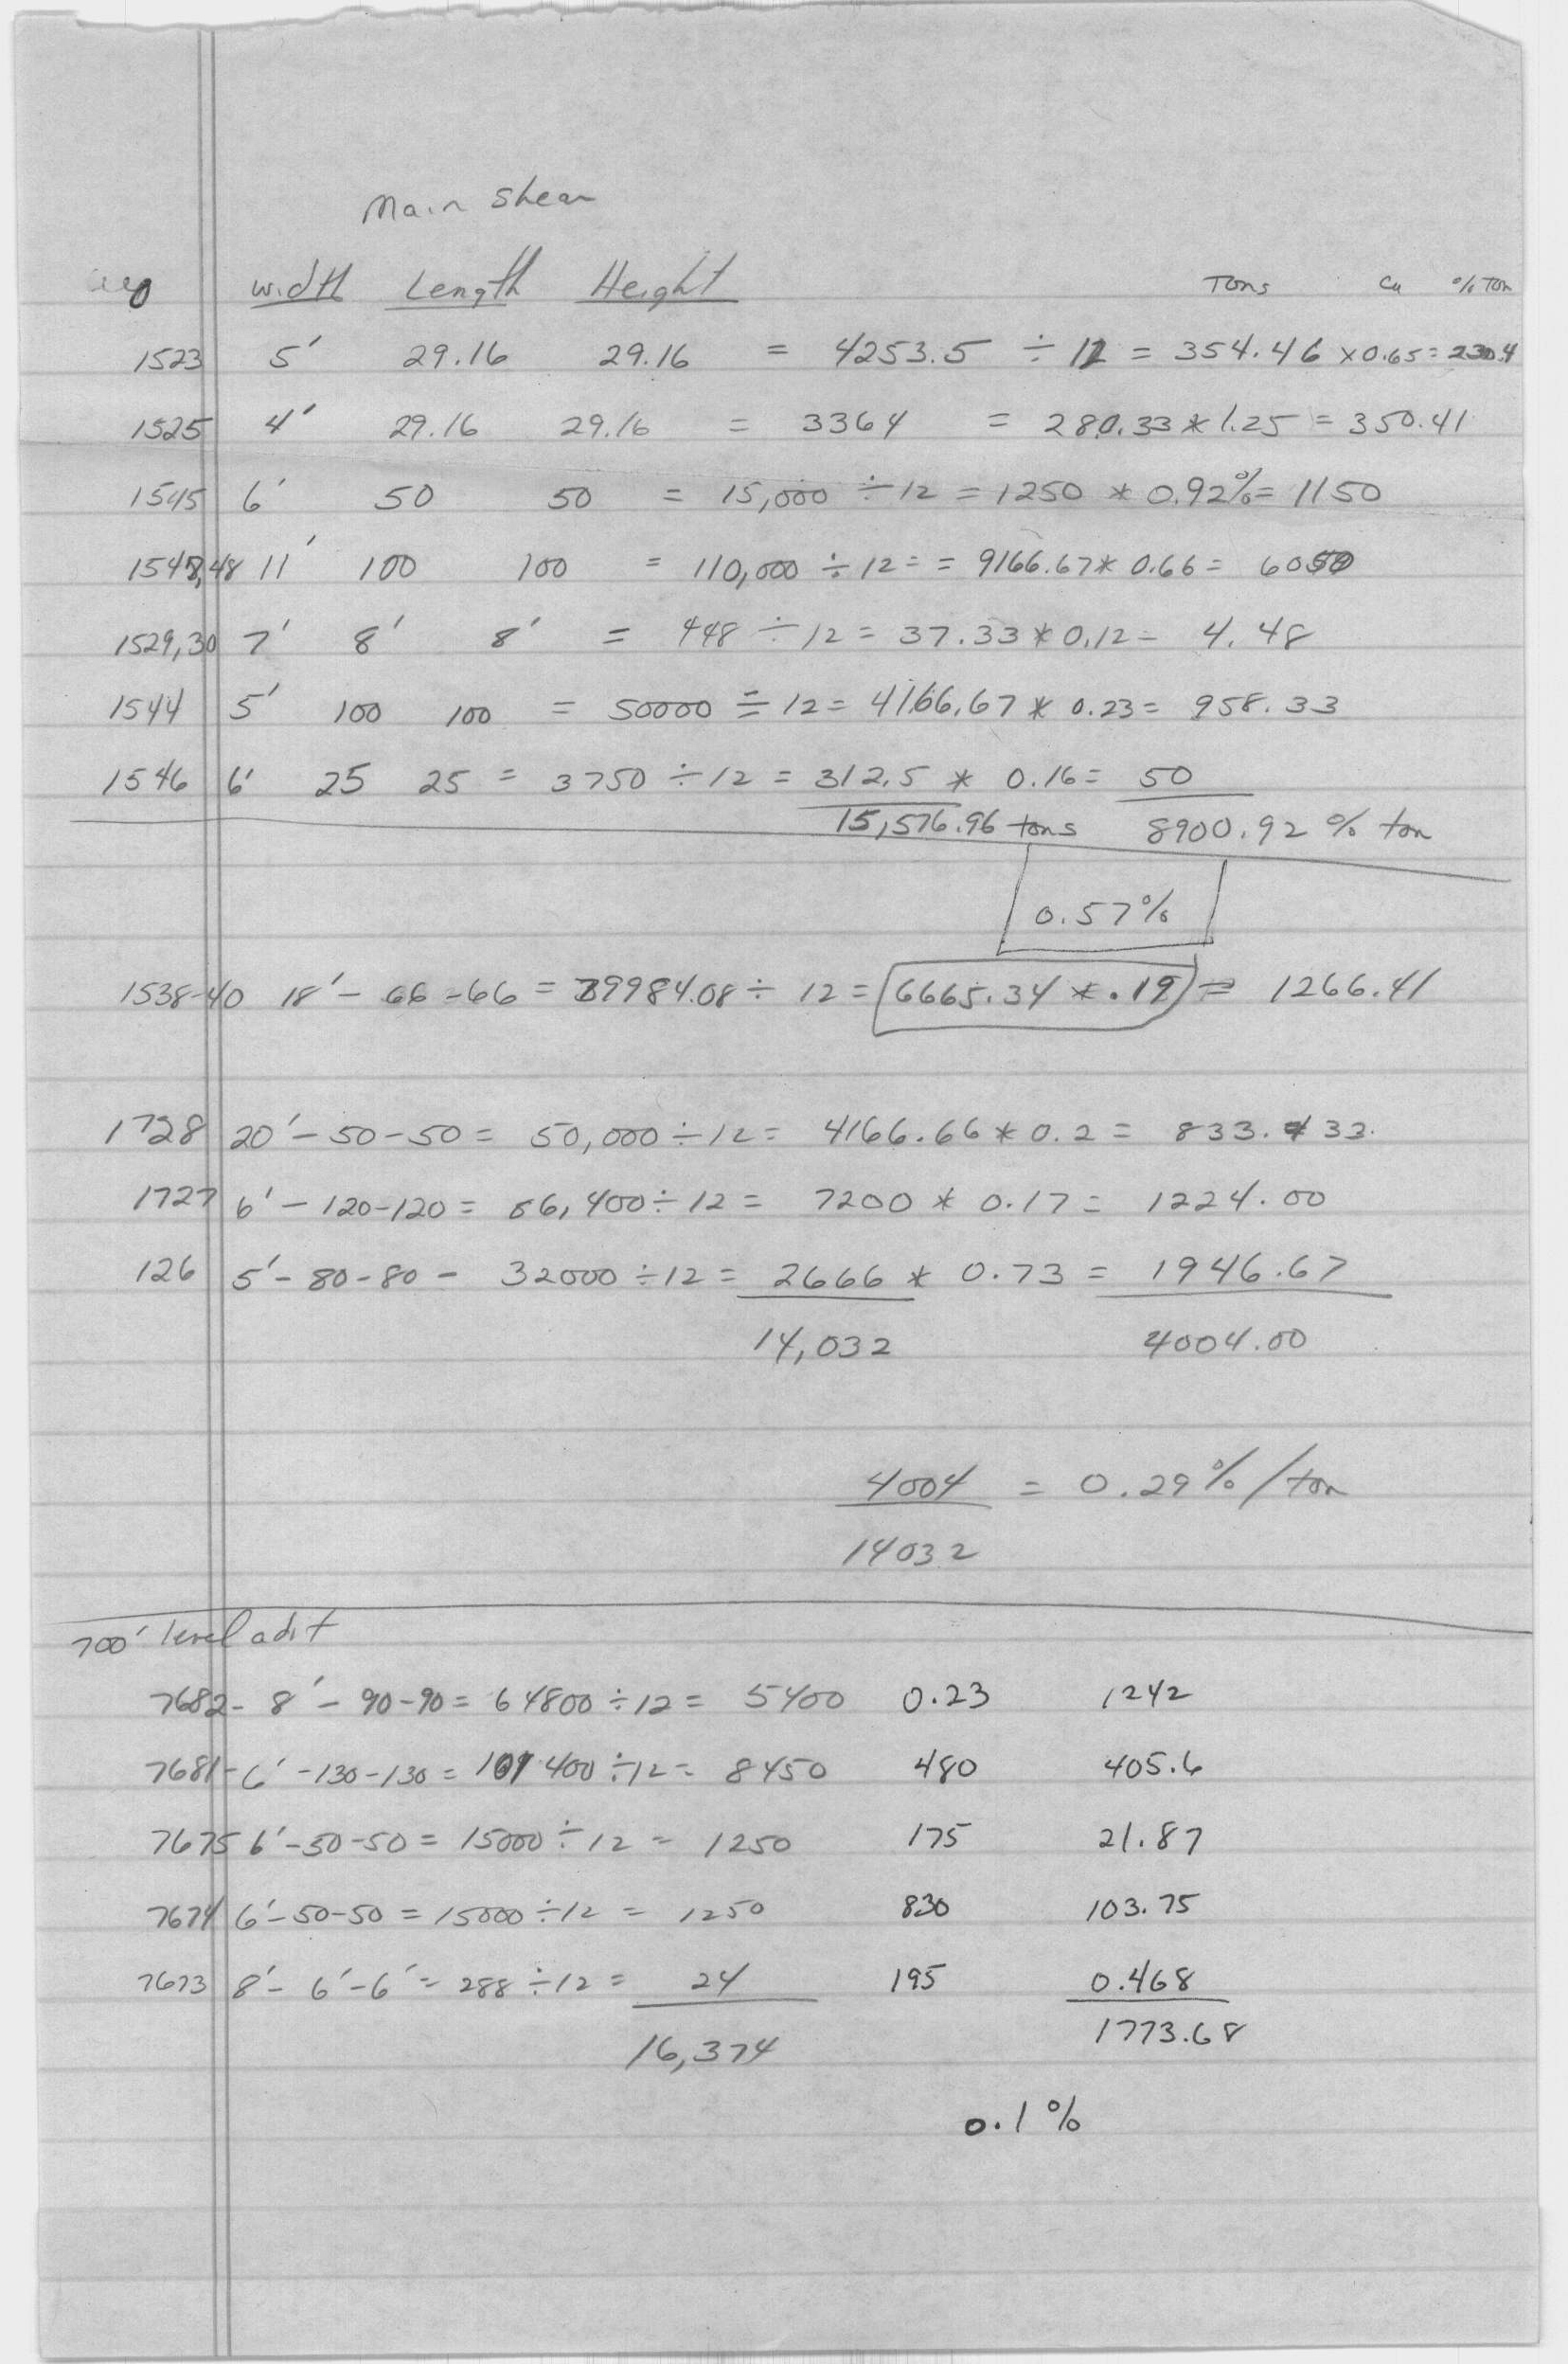 Main Shear
width Length Height Tons Cu % Ton
1523 5' 29.16 29.16 = 4253.5 ÷ 12 = 354.46 x 0.65 = 230.4
1525 4' 29.16 29.16 = 3364 = 280.33 * 1.25 = 350.41
1545 6' 50 50 = 15,000 ÷ 12 = 1250 * 0.92% = 1150
1547,48 11' 100 100 = 110,000 ÷ 12 = = 9166.67 * 0.66 = 6050
1529,30 7' 8' 8' = 448 ÷ 12 = 37.33 * 0.12 - 4.48
1544 5' 100 100 = 50000 ÷ 12 = 4166.67 * 0.23 = 958.33
1546 6' 25 25 = 3750 ÷ 12 = 312.5 * 0.16 = 50
15,576.96 tons 8900.92 % ton
0.57%
1538-40 18' - 66 - 66 = 79984.08 ÷ 12 = 6665.34 * .19 = 1266.41
1728 20' - 50 - 50 = 50,000 ÷ 12 = 4166.66 * 0.2 = 833.33
1727 6' - 120 - 120 = 86,400 ÷ 12 = 7200 * 0.17 = 1224.00
126 5' - 80 - 80 - 32000 ÷ 12 = 2666 * 0.73 = 1946.67
14,032 4004.00
4004 = 0.29% / ton
14032
700' level adit
7682 - 8' - 90 - 90 = 64800 ÷ 12 = 5400 0.23 1242
7681 - 6' - 130 - 130 = 101 400 ÷ 12 = 8450 480 405.6
7675 6' - 50 - 50 = 15000 ÷ 12 = 1250 175 21.87
7674 6' - 50 - 50 = 15000 ÷ 12 = 1250 830 103.75
7673 8' - 6' - 6' = 288 ÷ 12 = 24 195 0.468
16,374 1773.68
0.1%